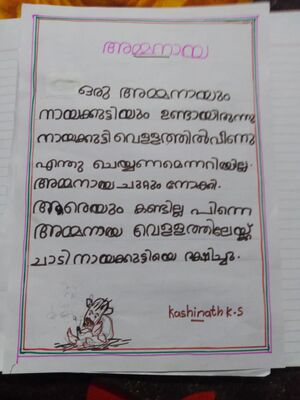 അമ്മനായ
ഒരു അമ്മനായും
നായക്കുട്ടിയും ഉണ്ടായിരുന്നു
നായക്കുട്ടി വെള്ളത്തിൽവീണു
എന്തു ചെയ്യണമെന്നറിയില്ല.
അമ്മനായ ചുറ്റും നോക്കി.
ആരെയും കണ്ടില്ല പിന്നെ
അമ്മനായ വെള്ളത്തിലേയ്ക്ക്
ചാടി നായക്കുട്ടിയെ രക്ഷിച്ചു.
kashinath k.s